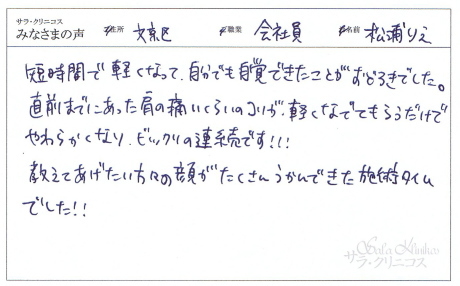 サラ・クリニコス
みなさまの声
住所 文京区 職業 会社員 名前 松浦りえ
短時間で軽くなって、自分でも自覚できたことがおどろきでした。
直前までにあった肩の痛いくらいのコリが、軽くなでてもらうだけで
やわらかくなり、ビックリの連続です!!!
教えてあげたい方々の顔がたくさんうかんできた施術タイム
でした!!
Sara Klinikos
サラ・クリニコス